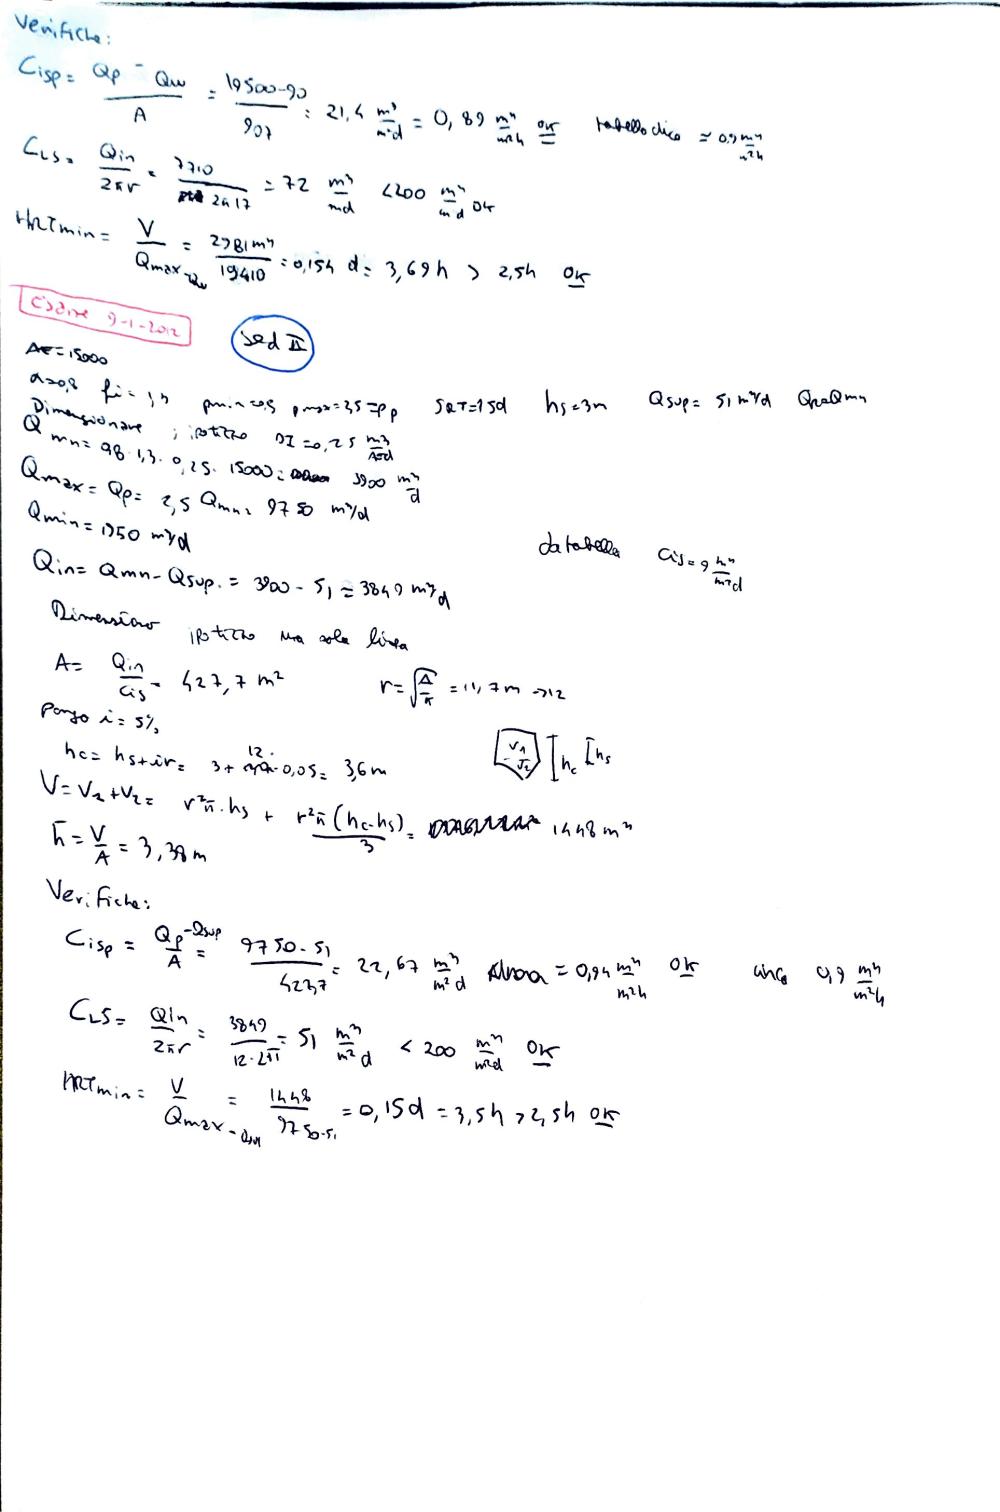 Verifiche:
Cisp = (Qp - Qw)/A = (19500-90)/907 = 21,4 m³/m²d = 0,89 m³/m²h OK tabella dice ≈ 0,9 m³/m²h
CLS = Qin/2πr = 7710/2π17 = 72 m³/md < 200 m³/md OK
HRTmin = V/(Qmax-Qw) = 2981 m³/19410 = 0,154 d = 3,69 h > 2,5h OK
Esame 9-1-2012 Sed II
AE = 15000
α=0,8 fi = 1,3 pmin=0,5 pmax=2,5=pp SRT=15d hs=3m Qsup = 51 m³/d QR=Qmn
Dimensionare ; ipotizzo DI = 0,25 m³/AEd
Qmn = 0,8·1,3·0,25·15000 = 3900 m³/d
Qmax = Qp = 2,5 Qmn = 9750 m³/d
Qmin = 1950 m³/d
da tabella Cis = 9 m³/m²d
Qin = Qmn - Qsup. = 3900 - 51 = 3849 m³/d
Dimensiono ipotizzo una sola linea
A = Qin/Cis = 427,7 m² r = √(A/π) = 11,7m → 12
Pongo i = 5%
hc = hs + ir = 3 + 12·0,05 = 3,6m
V1 V2 hc hs
V = V1 + V2 = r²π·hs + r²π(hc-hs)/3 = 1448 m³
h̄ = V/A = 3,38 m
Verifiche:
Cisp = (Qp-Qsup)/A = (9750-51)/427,7 = 22,67 m³/m²d = 0,94 m³/m²h OK circa 0,9 m³/m²h
CLS = Qin/2πr = 3849/12·2π = 51 m³/m²d < 200 m³/m²d OK
HRTmin = V/(Qmax-Qsup) = 1448/9750-51 = 0,15d = 3,5h > 2,5h OK